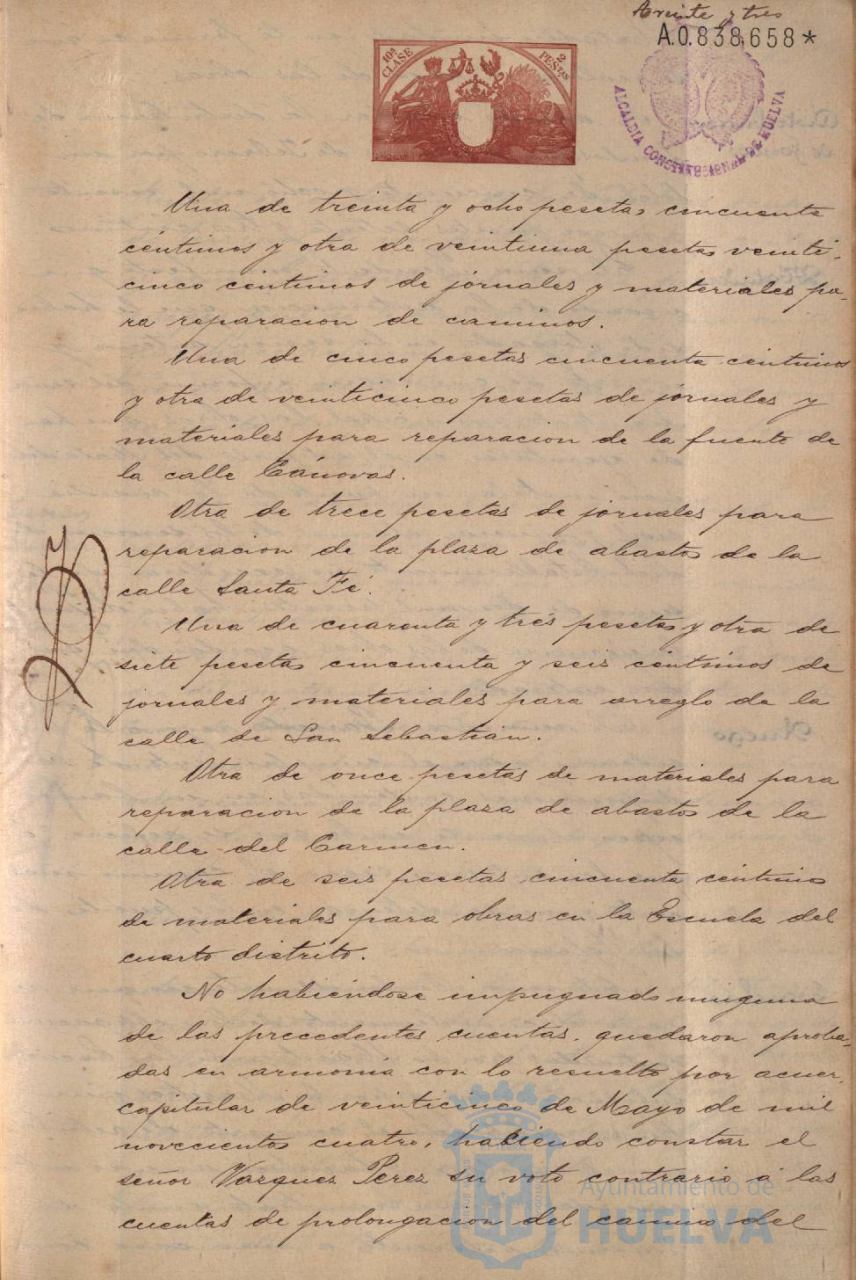 treinta y tres
A.0.838,658*
10ª CLASE
2 PESETAS
ALCALDIA CONSTITUCIONAL DE HUELVA
Una de treinta y ocho pesetas cincuenta
céntimos y otra de veintiuna pesetas veinti-
cinco centimos de jornales y materiales pa-
ra reparacion de caminos.
Una de cinco pesetas cincuenta centimos
y otra de veinticinco pesetas de jornales y
materiales para reparacion de la fuente de
la calle Cánovas.
Otra de trece pesetas de jornales para
reparacion de la plaza de abastos de la
calle Santa Fé.
Una de cuarenta y trés pesetas y otra de
siete pesetas cincuenta y seis centimos de
jornales y materiales para arreglo de la
calle de San Sebastián.
Otra de once pesetas de materiales para
reparacion de la plaza de abastos de la
calle del Carmen.
Otra de seis pesetas cincuenta centimos
de materiales para obras en la Escuela del
cuarto distrito.
No habiéndose impugnado ninguna
de las precedentes cuentas, quedaron aproba-
das en armonía con lo resuelto por acuer.
capitular de veinticinco de Mayo de mil
novecientos cuatro, haciendo constar el
señor Vazquez Perez su voto contrario á las
cuentas de prolongacion del camino del
Ayuntamiento de
HUELVA